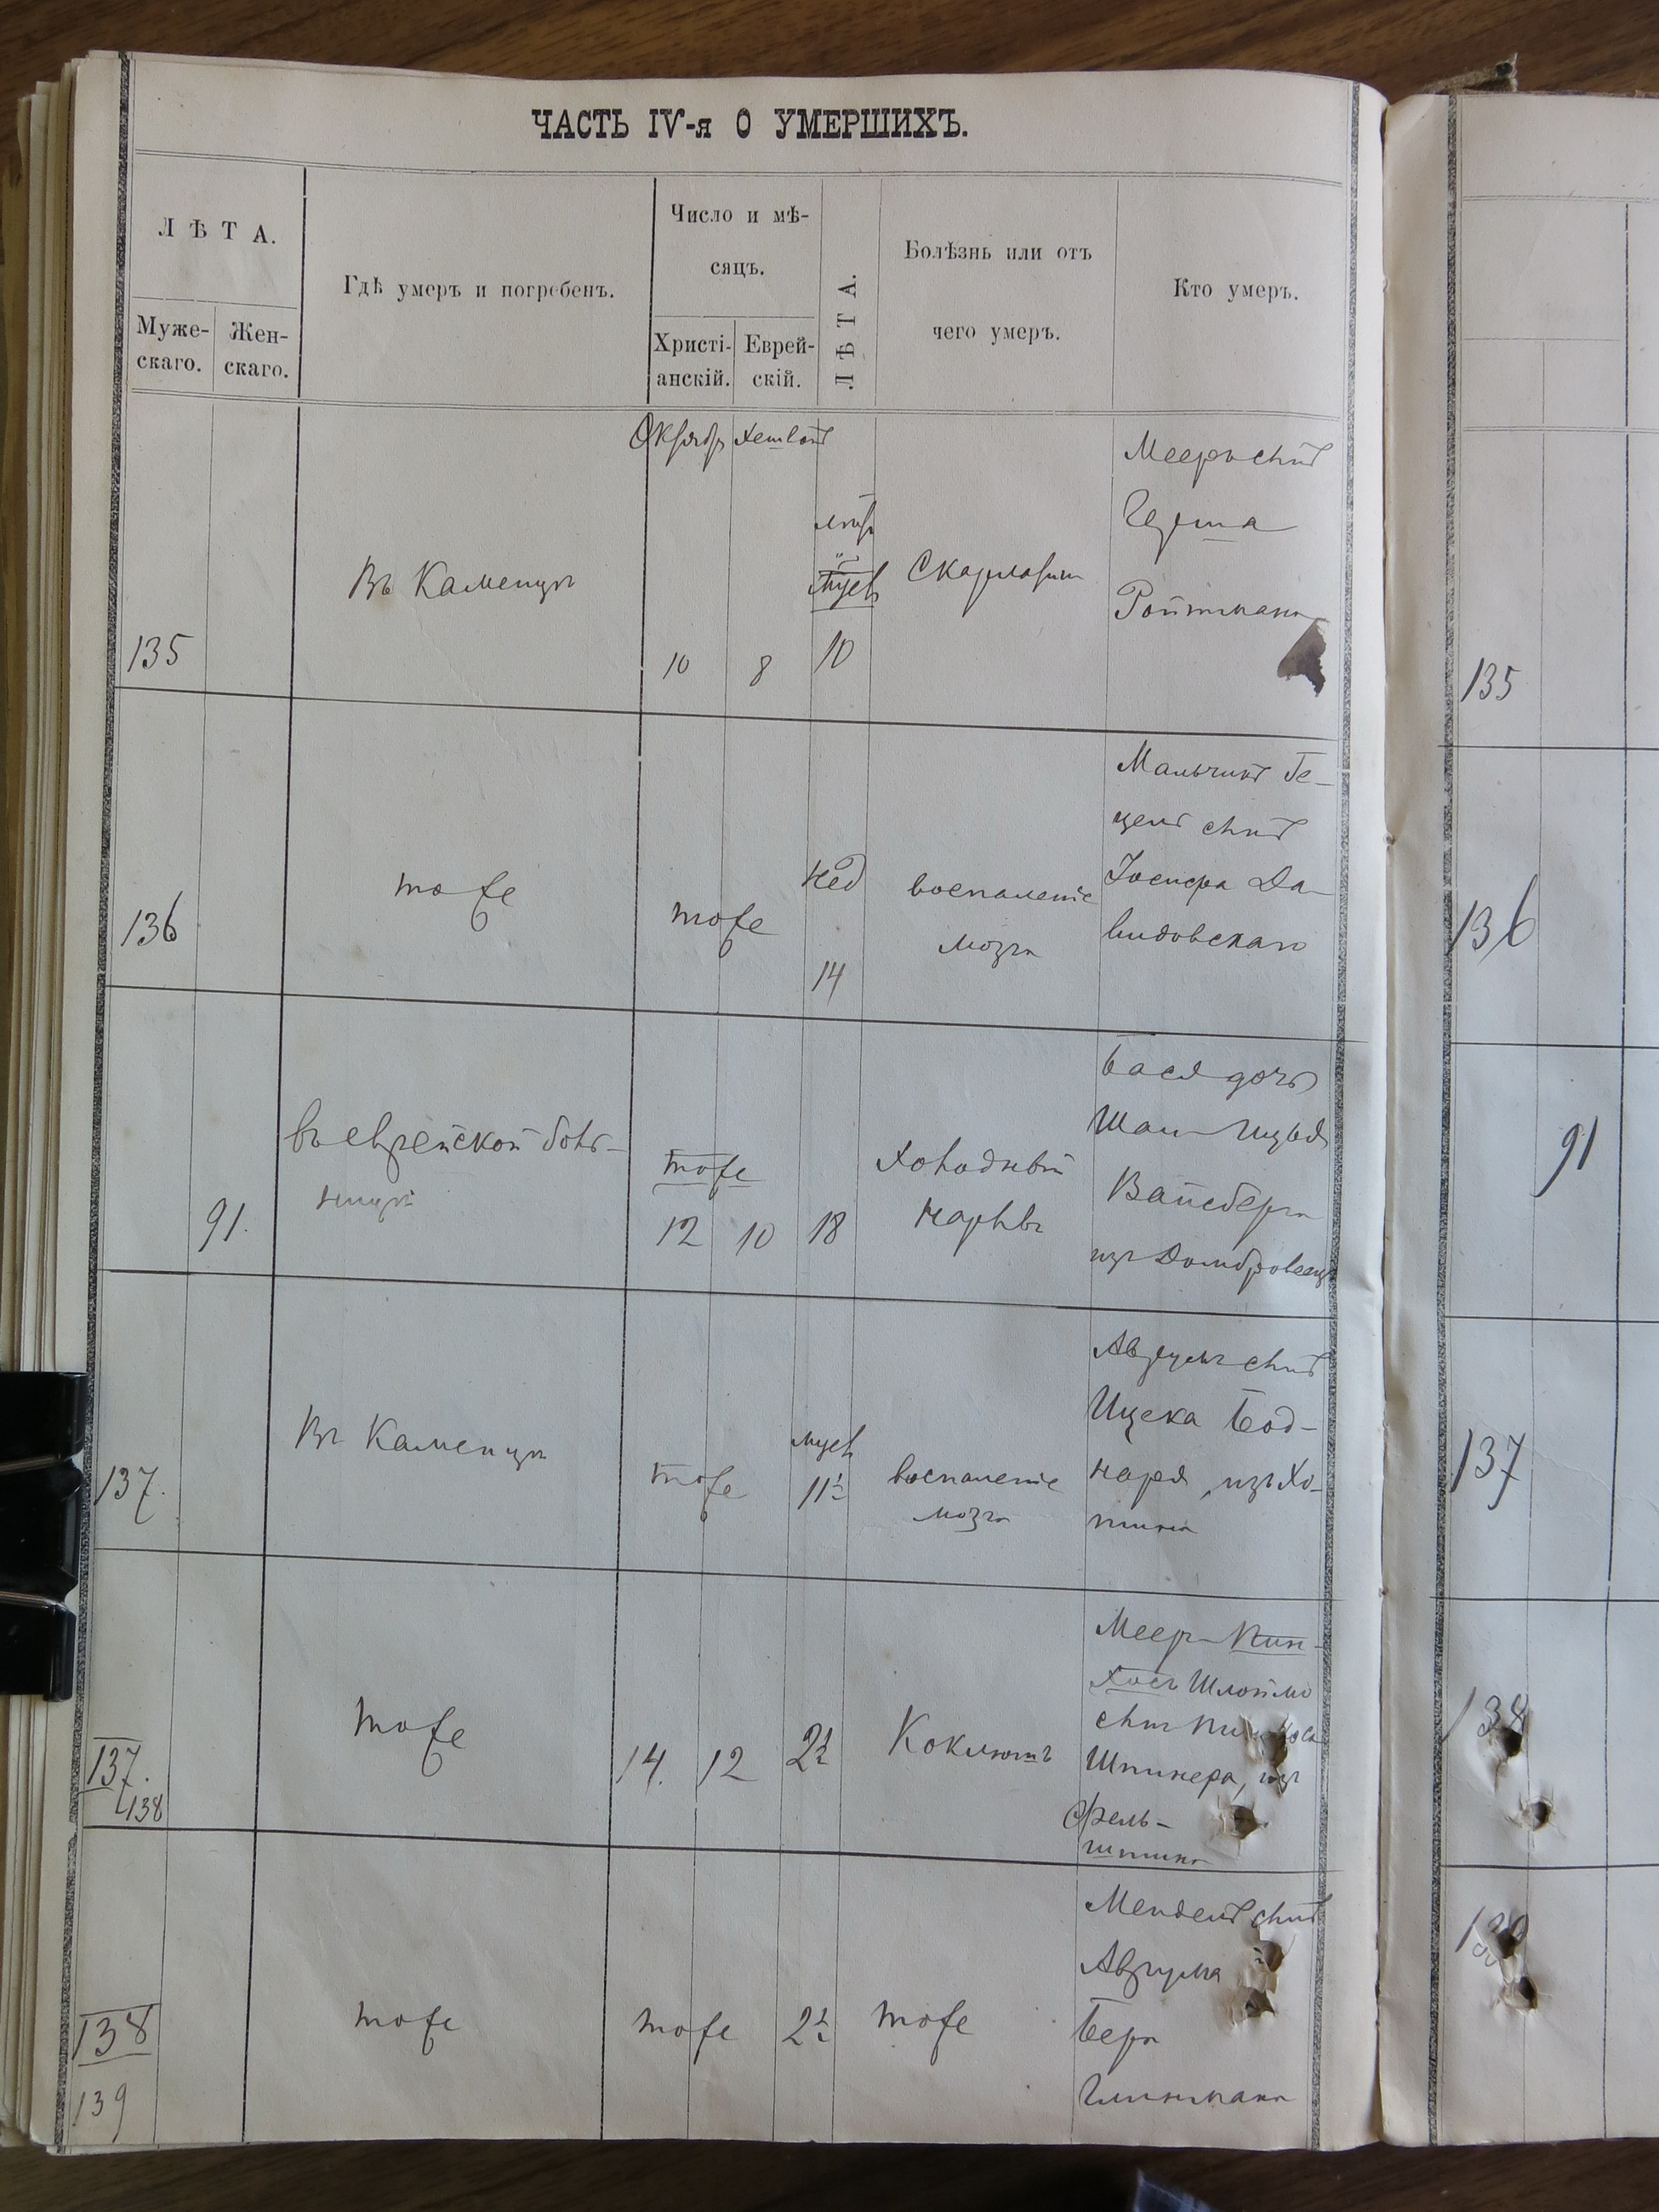 ЧАСТЬ IV-я О УМЕРШИХЪ.
ЛѢТА.
Муже-
скаго.
Жен-
скаго.
Гдѣ умеръ и погребенъ.
Число и мѣ-
сяцъ.
Христі-
анскій.
Еврей-
скій.
ЛѢТА.
Болѣзнь или отъ
чего умеръ.
Кто умеръ.
135
Въ Каменцѣ
10
8
10
Скарлатин
Мееръ сынъ
Ройтмана
135
136
тоже
тоже
Нед
14
воспаленіе
мозга
Мальчикъ Ге-
целъ сынъ
Іосифа Да-
видовскаго
136
91.
въ еврейской боль-
ницѣ
тоже
12
10
18
Холодный
нарывъ
Бася дочь
Вайсберга
изъ
91
137.
Въ Каменцѣ
тоже
мѣс
11½
воспаленіе
мозга
Аврумъ сынъ
Ицека Бод-
наря, изъ Хо-
тина
137
137.
138
тоже
14.
12
2½
Коклюшъ
Мееръ-Пин-
хосъ Шлоймо
сынъ Пинхоса
Шпинера, изъ
Фель-
штина
138
138
139
тоже
тоже
2½
тоже
Мендель сынъ
Аврума
Бера
139